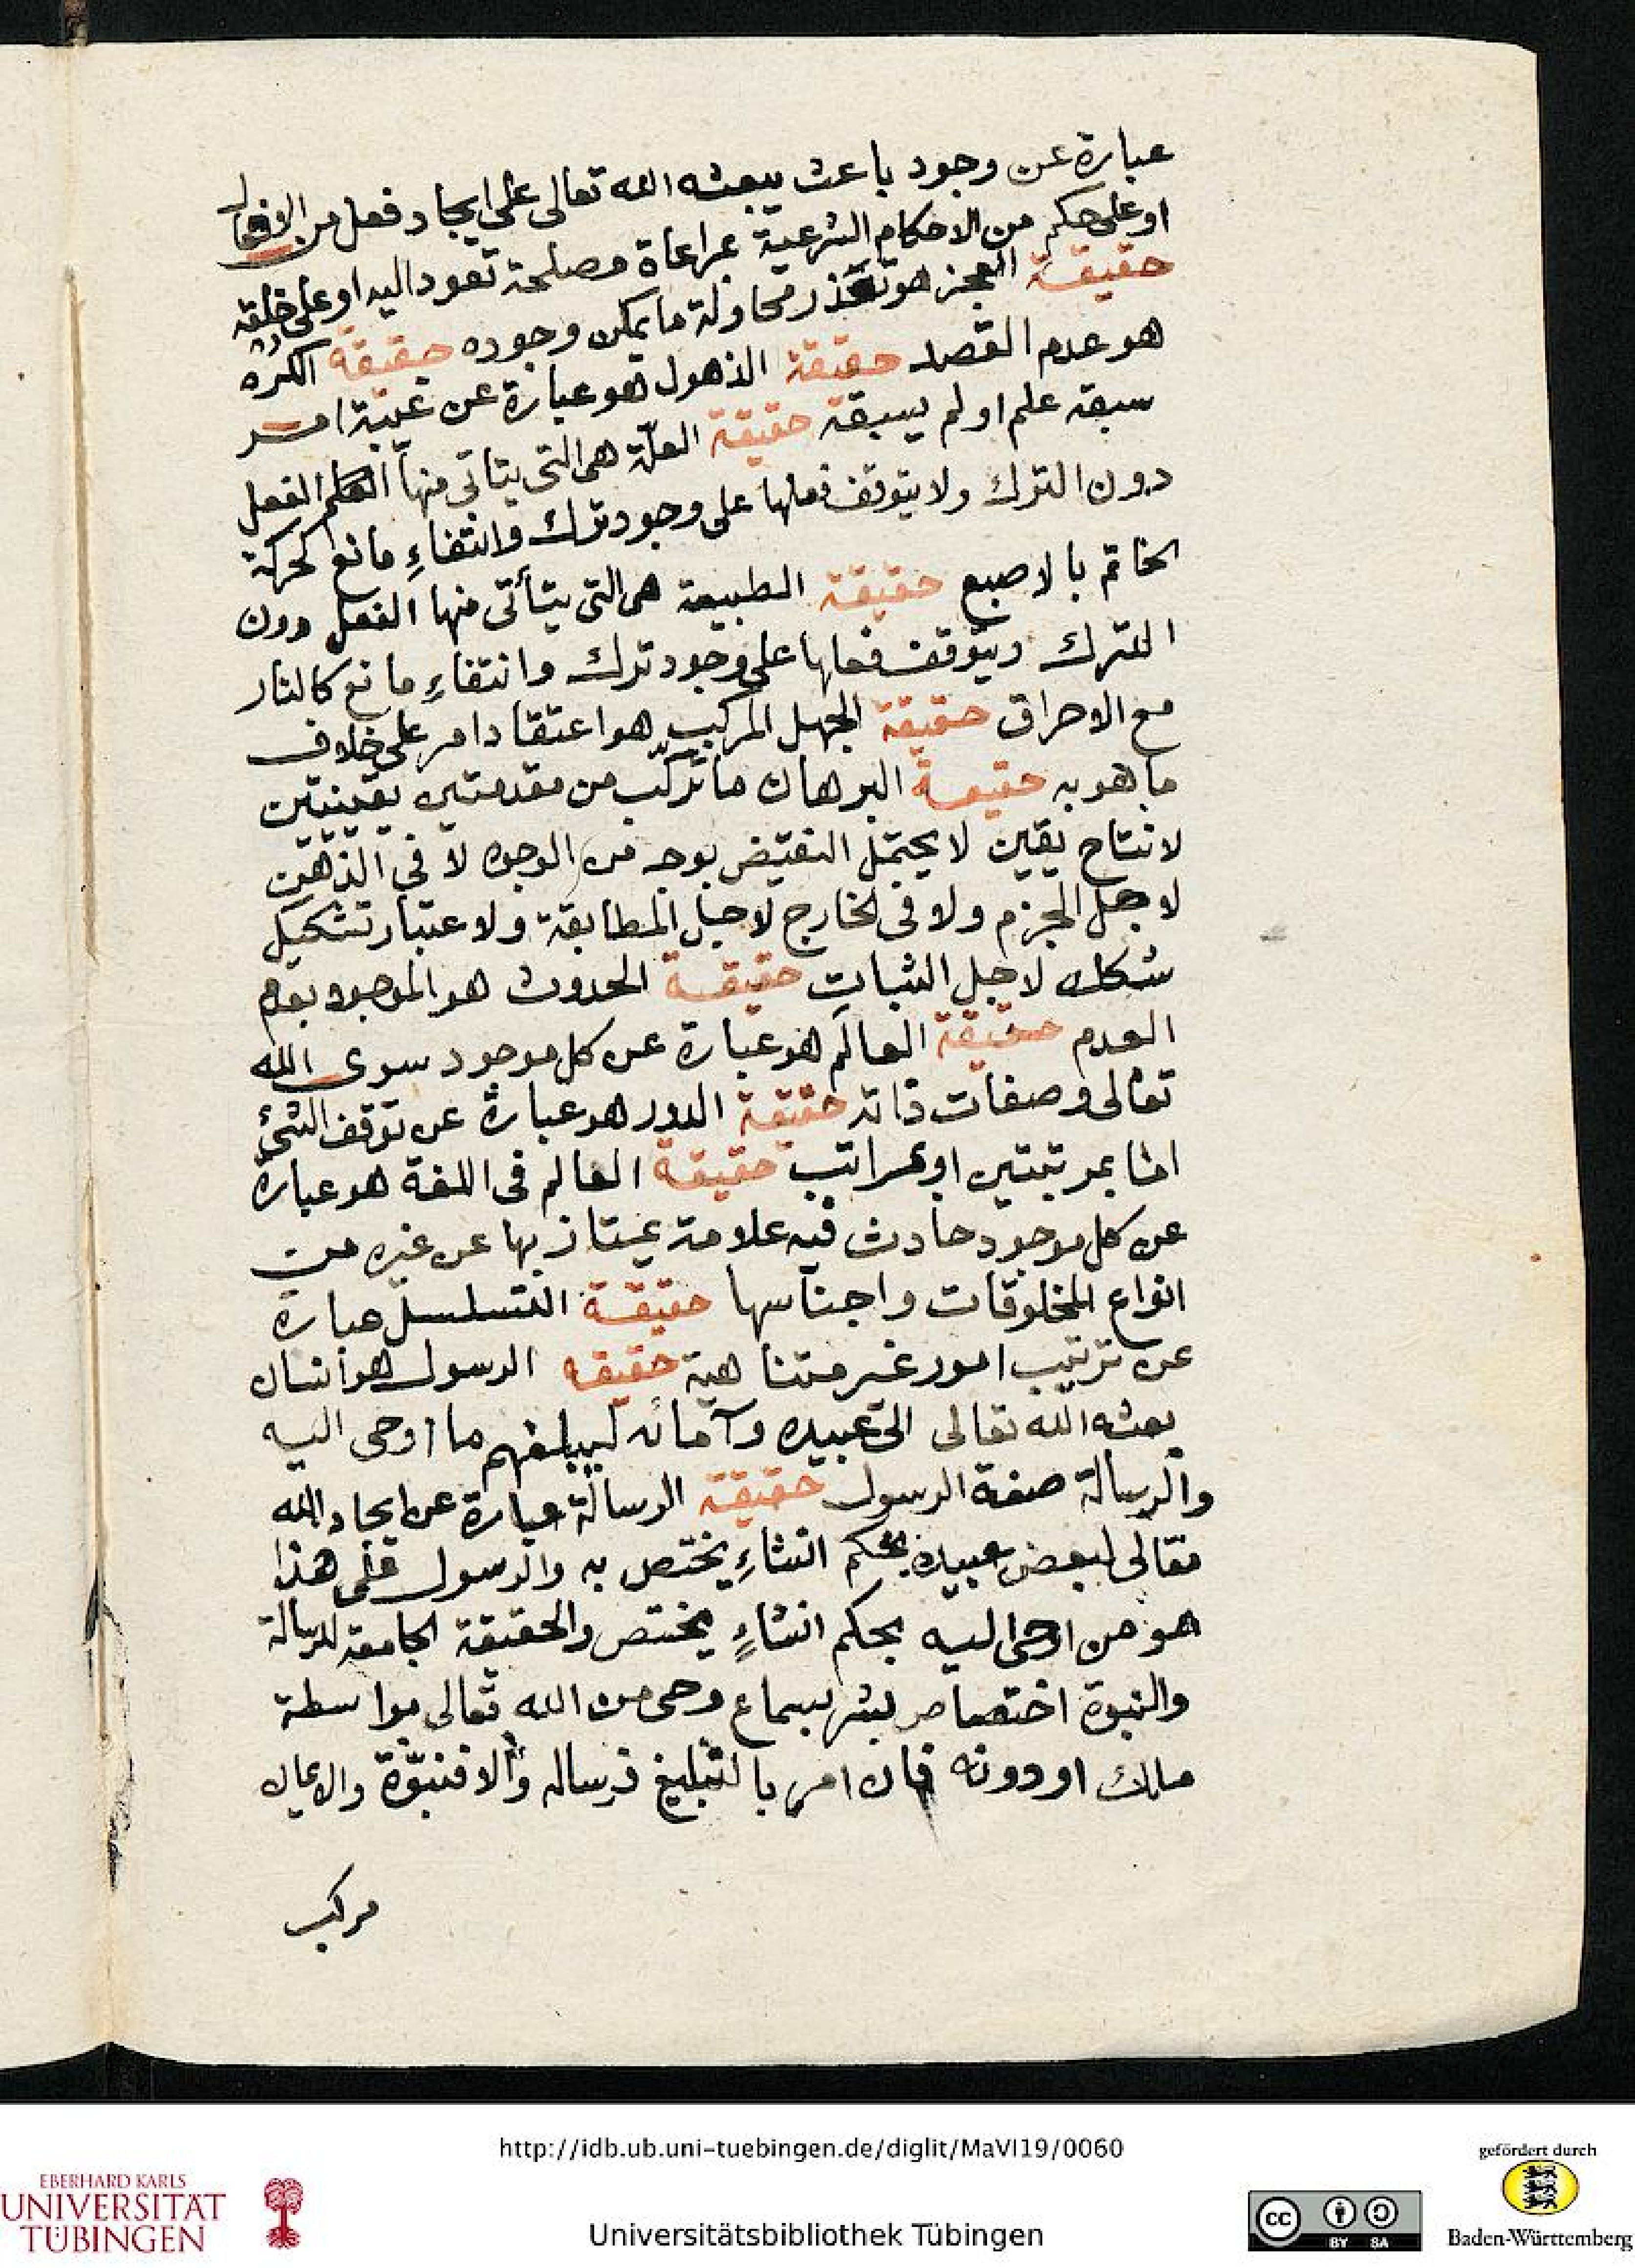 عبارة عن وجود باعث يبعثه الله تعالى على ايجاد فعل من الافعال
او على حكم من الاحكام الشرعية بمراعاة مصلحة تعود اليه او على خلقه
حقيقة العجز هو تعذر محاولة ما يمكن وجوده حقيقة الكره
هو عدم القصد حقيقة الذهول هو عبارة عن غيبة امر
سبقه علم او لم يسبقه حقيقة العلّة هى التى يتاتى منها الفعل
دون الترك ولا يتوقف فعلها على وجود ترك وانتفاءِ مانع كحركة
الخاتم بالاصبع حقيقة الطبيعة هى التى يتأتى منها الفعل دون
الترك ويتوقف فعلها على وجود ترك وانتفاءِ مانع كالنار
مع الاحراق حقيقة الجهل المركب هو اعتقاد امر على خلاف
ما هو به حقيقة البرهان ما تركّب من مقدمتين يقينيتين
لانتاج يقين لا يحتمل النقيض بوجه من الوجوه لا فى الذهن
لاجل الجزم ولا فى الخارج لاجل المطابقة ولا عتبار تشكيك
شكك لاجل الثبات حقيقة الحدوث هو الموجود بعد
العدم حقيقة العالم هو عبارة عن كل موجود سوى الله
تعالى وصفات ذاته حقيقة الدور هو عبارة عن توقف الشئ
اما بمرتبتين او بمراتب حقيقة العالم فى اللغة هو عبارة
عن كل موجود حادث فيه علامة يمتاز بها عن غيره من
انواع المخلوقات واجناسها حقيقة التسلسل عبارة
عن ترتيب امور غير متناهية حقيقه الرسول هو انسان
بعثه الله تعالى الى عبيده وآمائه ليبلغهم ما اوحى اليه
والرسالة صفة الرسول حقيقة الرسالة عبارة عن ايجاد الله
تعالى لبعض عبيده بحكم انشاءِ يختص به والرسول على هذا
هو من اوحى اليه بحكم انشاءٍ يختص والحقيقة الجامعة للرسالة
والنبوة اختصاص بشر بسماع وحى من الله تعالى بواسطة
ملك او دونه فان امر بالتبليغ فرساله وألا فنبوّة والايمان
مركب
http://idb.ub.uni-tuebingen.de/diglit/MaVI19/0060
gefördert durch
EBERHARD KARLS
UNIVERSITÄT
TÜBINGEN
Universitätsbibliothek Tübingen
cc BY SA
Baden-Württemberg